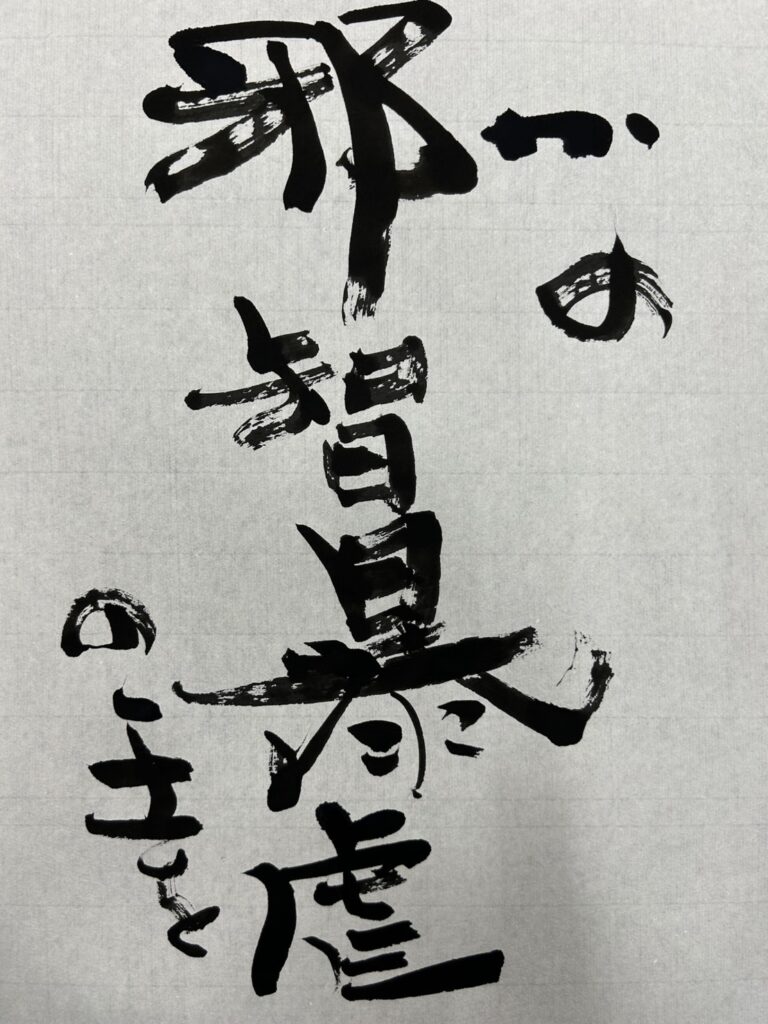 かの
邪智暴虐
の王を